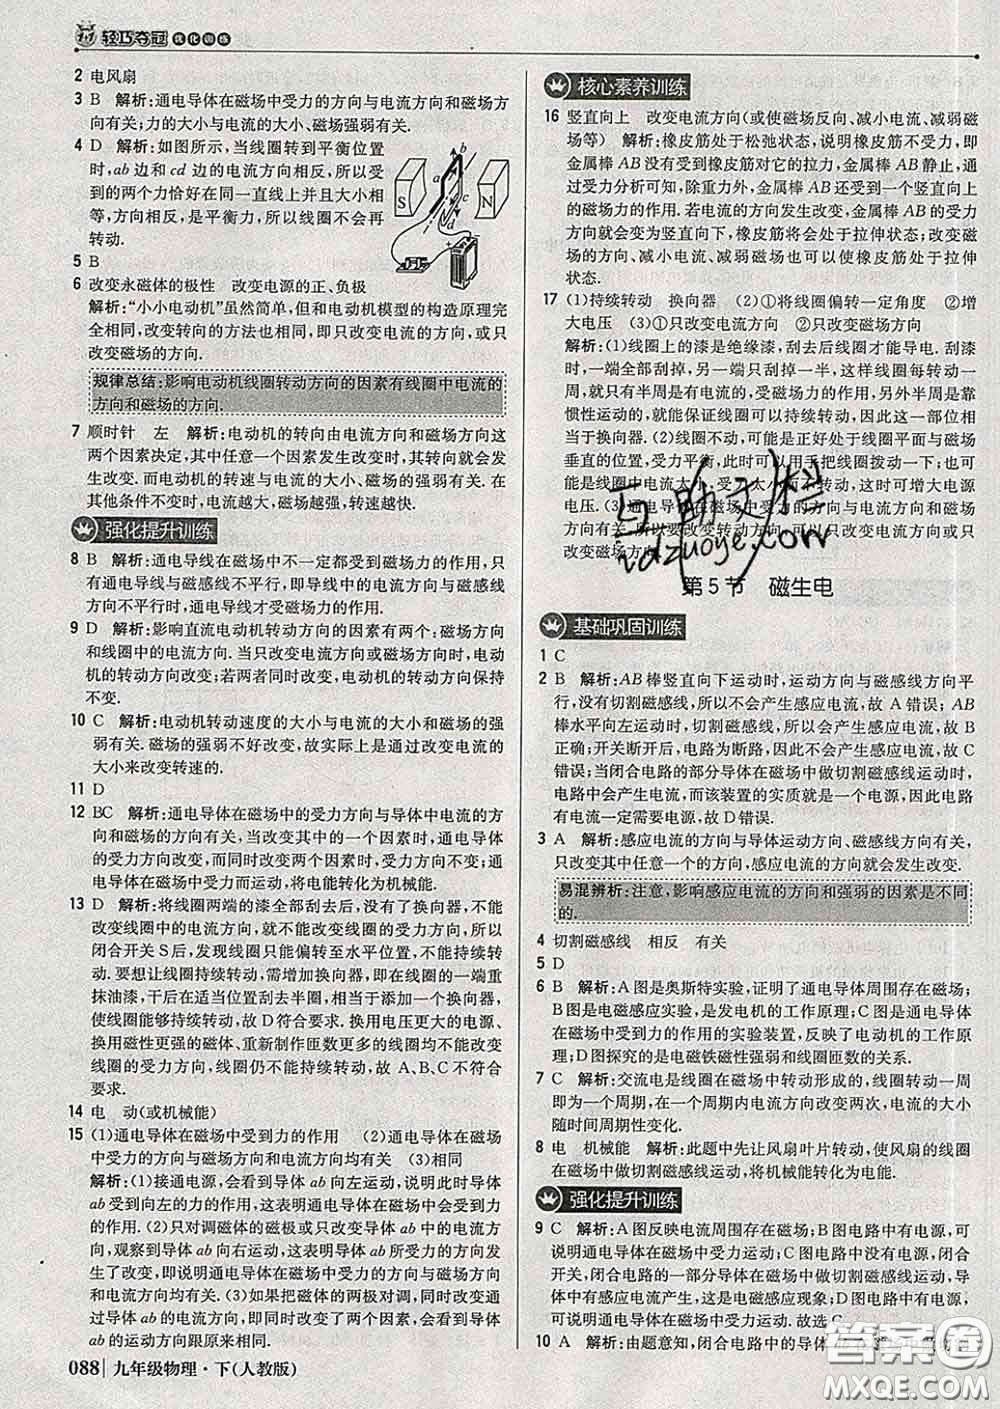 1+1 轻巧夺冠 优化训练
2 电风扇
3 B 解析:通电导体在磁场中受力的方向与电流方向和磁场方
向有关;力的大小与电流的大小、磁场强弱有关.
4 D 解析:如图所示,当线圈转到平衡位置
时,ab边和cd边的电流方向相反,所以受
到的两个力恰好在同一直线上并且大小相
等,方向相反,是平衡力,所以线圈不会再
转动.
a b c d S N
5 B
6 改变永磁体的极性 改变电源的正、负极
解析:“小小电动机”虽然简单,但和电动机模型的构造原理完
全相同,改变转向的方法也相同,即只改变电流的方向,或只
改变磁场的方向.
规律总结:影响电动机线圈转动方向的因素有线圈中电流的
方向和磁场的方向.
7 顺时针 左 解析:电动机的转向由电流方向和磁场方向这
两个因素决定,其中任意一个因素发生改变时,其转向就会发
生改变.而电动机的转速与电流的大小、磁场的强弱有关.在
其他条件不变时,电流越大,磁场越强,转速越快.
强化提升训练
8 B 解析:通电导线在磁场中不一定都受到磁场力的作用,只
有通电导线与磁感线不平行,即导线中的电流方向与磁感线
方向不平行时,通电导线才受磁场力的作用.
9 D 解析:影响直流电动机转动方向的因素有两个:磁场方向
和线圈中的电流方向.当只改变电流方向或磁场方向时,电动
机的转动方向改变;若两者同时改变,电动机的转动方向保持
不变.
10 C 解析:电动机转动速度的大小与电流的大小和磁场的强
弱有关.磁场的强弱不好改变,故实际上是通过改变电流的
大小来改变转速的.
11 D
12 BC 解析:通电导体在磁场中的受力方向与导体中电流的方
向和磁场的方向有关,当改变其中的一个因素时,通电导体
的受力方向改变,而同时改变两个因素时,受力方向不变;通
电导体在磁场中受力而运动,将电能转化为机械能.
13 D 解析:将线圈两端的漆全部刮去后,没有了换向器,不能
改变线圈中的电流方向,就不能改变线圈的受力方向,所以
闭合开关S后,发现线圈只能偏转至水平位置,不能持续转
动.要想让线圈持续转动,需增加换向器,即在线圈的一端重
抹油漆,干后在适当位置刮去半圈,相当于增加一个换向器,
使线圈能够持续转动,故D符合要求.换用电压更大的电源、
换用磁性更强的磁体、重新制作匝数更多的线圈均不能改变
线圈的受力方向,线圈仍不能持续转动,故A、B、C不符合
要求.
14 电 动(或机械能)
15 (1)通电导体在磁场中受到力的作用 (2)通电导体在磁场
中受力的方向与磁场方向和电流方向均有关 (3)相同
解析:(1)接通电源,会看到导体ab向左运动,说明此时导体
ab受到向左的力的作用,这表明通电导体在磁场中会受到力
的作用.(2)只对调磁体的磁极或只改变导体ab中的电流方
向,观察到导体ab向右运动,这表明导体ab所受力的方向发
生了改变,即说明通电导体在磁场中受力的方向与磁场方向
和电流方向均有关.(3)如果把磁体的两极对调,同时改变导
体ab的电流方向,由于同时改变了两个因素,所以看到导体
ab的运动方向跟原来相同.
088 九年级物理·下(人教版)
核心素养训练
16 竖直向上 改变电流方向(或使磁场反向、减小电流、减弱磁
场等) 解析:橡皮筋处于松弛状态,说明橡皮筋不受力,即
金属棒AB没有受到橡皮筋对它的拉力,金属棒AB静止,通
过受力分析可知,除重力外,金属棒AB还受到一个竖直向上
的磁场力的作用.若电流的方向发生改变,金属棒AB的受力
方向就会变为竖直向下,橡皮筋将会处于拉伸状态;改变磁
场的方向、减小电流、减弱磁场也可以使橡皮筋处于拉伸
状态.
17 (1)持续转动 换向器 (2)①将线圈偏转一定角度 ②增
大电压 (3)①只改变电流方向 ②只改变磁场方向
解析:(1)线圈上的漆是绝缘漆,刮去后线圈才能导电.刮漆
时,一端全部刮掉,另一端只刮掉一半,这样线圈每转动一
周,就有半周是有电流的,受磁场力的作用,另外半周是靠
惯性运动的,就能保证线圈可以持续转动,因此这一部位相
当于换向器.(2)线圈不动,可能是正好处于线圈平面与磁场
垂直的位置,受力平衡,此时可以用手把线圈拨动一下,也可
能是线圈中电流太小,受力太小而不能转动,这时可增大电源
电压.(3)通电导体在磁场中受力的方向与电流方向和磁场
方向有关,所以要改变转动方向,可以只改变电流方向或只
改变磁场方向.
互助文栏
idzuoye.com
第5节 磁生电
基础巩固训练
1 C
2 B 解析:AB棒竖直向下运动时,运动方向与磁感线方向平
行,没有切割磁感线,所以不会产生感应电流,故A错误;AB
棒水平向左运动时,切割磁感线,所以会产生感应电流,故B
正确;开关断开后,电路为断路,因此不会产生感应电流,故C
错误;当闭合电路的部分导体在磁场中做切割磁感线运动时,
电路中会产生电流,而该装置的实质就是一个电源,因此电路
有电流一定需要电源,故D错误.
3 A 解析:感应电流的方向与导体运动方向、磁感线方向有关,
只改变其中任意一个的方向,感应电流的方向就会发生改变.
易混辨析:注意,影响感应电流的方向和强弱的因素是不同
的.
4 切割磁感线 相反 有关
5 D
6 B 解析:A图是奥斯特实验,证明了通电导体周围存在磁场;
B图是电磁感应实验,是发电机的工作原理;C图是通电导体
在磁场中受到力的作用的实验装置,反映了电动机的工作原
理;D图探究的是电磁铁磁性强弱和线圈匝数的关系.
7 C 解析:交流电是线圈在磁场中转动形成的,线圈转动一周
即为一个周期,在一个周期内电流方向改变两次,电流的大小
随时间周期性变化.
8 电 机械能 解析:此题中先让风扇叶片转动,使风扇的线圈
在磁场中做切割磁感线运动,将机械能转化为电能.
强化提升训练
9 C 解析:A图反映电流周围存在磁场;B图电路中有电源,可
说明通电导体在磁场中受力运动;C图电路中没有电源,闭合
开关,闭合电路的一部分导体在磁场中做切割磁感线运动,导
体中有感应电流产生,这是电磁感应现象;D图电路中有电源,
可说明通电导体在磁场中受力运动.故选C.
10 A 解析:由题意知,闭合电路中的导体
答案圈
MXQE.COM